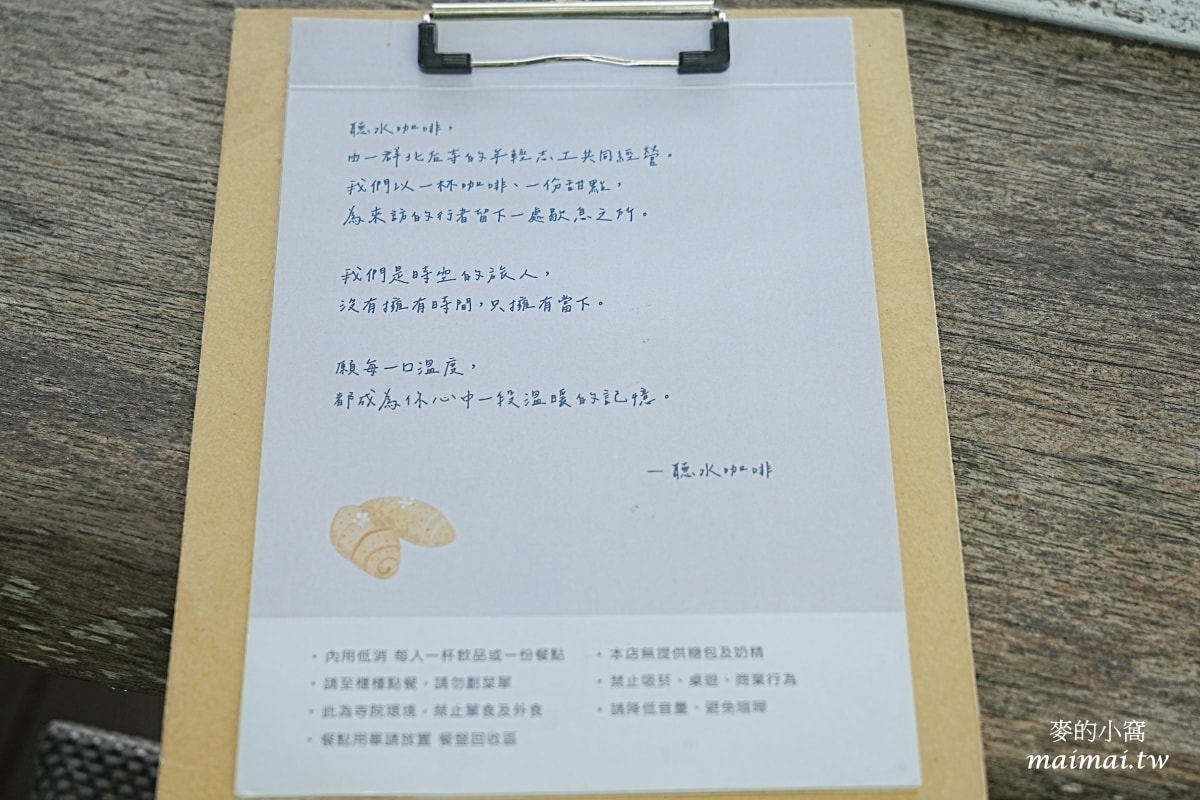 聽水咖啡,
由一群北后寺的年輕志工共同經營。
我們以一杯咖啡、一份甜點,
為來訪的行者留下一處歇息之所。
我們是時空的旅人,
沒有擁有時間,只擁有當下。
願每一口溫度,
都成為你心中一段溫暖的記憶。
—聽水咖啡
• 內用低消 每人一杯飲品或一份餐點
• 請至櫃檯點餐,請勿劃菜單
• 此為寺院環境,禁止葷食及外食
• 餐點用畢請放置 餐盤回收區
• 本店無提供糖包及奶精
• 禁止吸菸、桌遊、商業行為
• 請降低音量、避免喧嘩
麥的小窩
maimai.tw